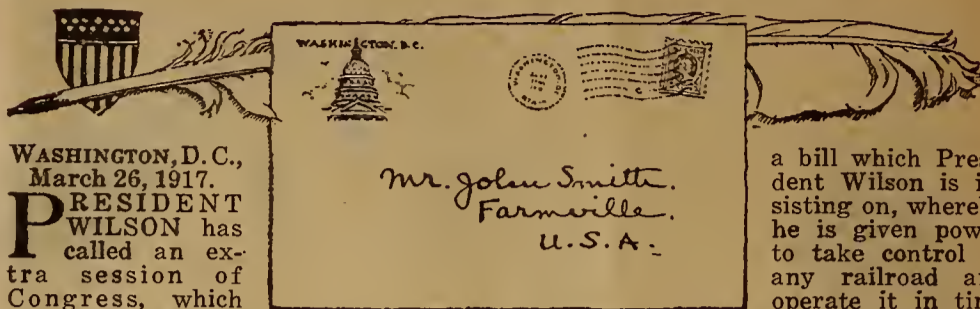 WASHINGTON, D.C.,
March 26, 1917.
PRESIDENT
WILSON has
called an ex-
tra session of
Congress, which
WASHINGTON, D.C.
Mr. John Smith.
Farmville.
U.S.A.
a bill which Pres
dent Wilson is i
sisting on, where
he is given pow
to take control
any railroad a
operate it in tim